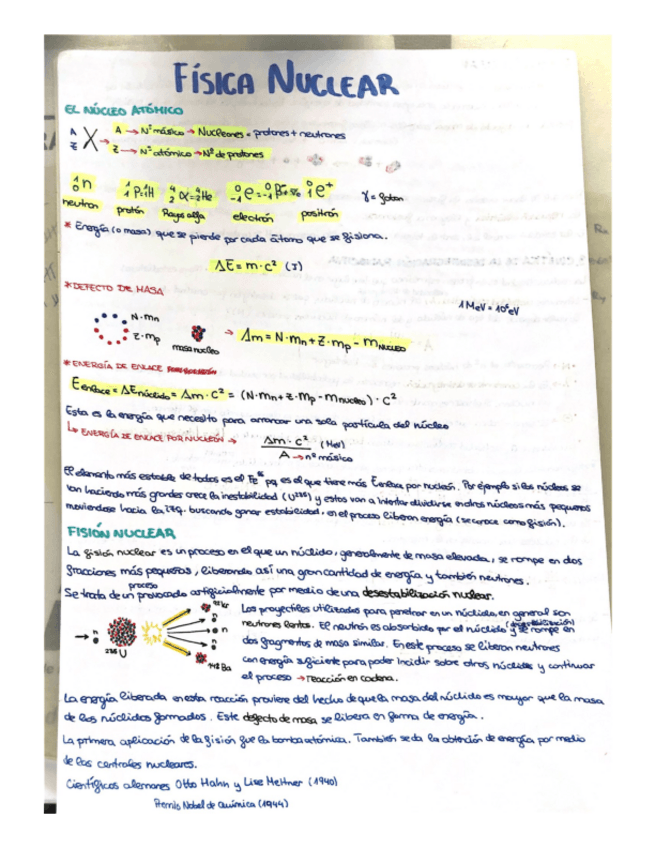 FÍSICA NUCLEAR
EL NÚCLEO ATÓMICO
A Z X → A → Nº másico → Nucleones = protones + neutrones
Z → Nº atómico → Nº de protones
1 0 n 1 1 p = 1 1 H 4 2 α = 4 2 He 0 -1 e = 0 -1 β 0 1 e⁺ γ = foton
neutron protón Rayos alfa electrón positrón
* Energía (o masa) que se pierde por cada átomo que se fisiona.
ΔE = m · c² (J)
* DEFECTO DE MASA
1 MeV = 10⁶ eV
N · mn
Z · mp
masa nucleo
→ Δm = N · mn + Z · mp - mNUCLEO
* ENERGÍA DE ENLACE
Eenlace = ΔEnúclido = Δm · c² = (N · mn + Z · mp - mnucleo) · c²
Esta es la energía que necesito para arrancar una sola partícula del núcleo
↳ ENERGÍA DE ENLACE POR NUCLEÓN → Δm · c² / A → nº másico (MeV)
El elemento más estable de todos es el Fe⁵⁶ pq es el que tiene más Eenlace por nucleón. Por ejemplo si los núcleos se
van haciendo más grandes crece la inestabilidad (U²³⁵) y estos van a intentar dividirse en otros núcleos más pequeños
moviendose hacia la izq. buscando ganar estabilidad, en el proceso liberan energía (se conoce como fisión).
FISIÓN NUCLEAR
La fisión nuclear es un proceso en el que un núclido, generalmente de masa elevada, se rompe en dos
fracciones más pequeñas, liberando así una gran cantidad de energía y también neutrones.
proceso
Se trata de un provocado artificialmente por medio de una desestabilización nuclear.
Los proyectiles utilizados para penetrar en un núclido, en general son
neutrones lentos. El neutrón es absorbido por el núclido y se rompe en
(desestabilización)
dos fragmentos de masa similar. En este proceso se liberan neutrones
con energía suficiente para poder incidir sobre otros núclidos y continuar
el proceso → reacción en cadena.
n
U
n
n
n
Ba
La energía liberada en esta reacción proviene del hecho de que la masa del núclido es mayor que la masa
de los núclidos formados. Este defecto de masa se libera en forma de energía.
La primera aplicación de la fisión fue la bomba atómica. También se da la obtención de energía por medio
de las centrales nucleares.
Científicos alemanes Otto Hahn y Lise Meitner (1940)
Premio Nobel de Química (1944)